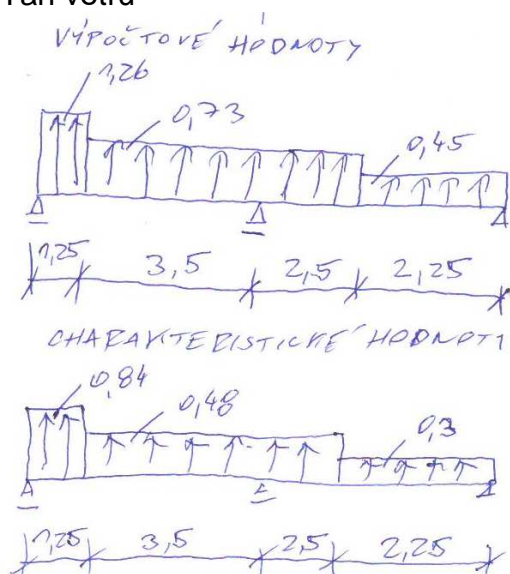 VÝPOČTOVÉ HODNOTY
1,26
0,73
0,45
1,25 3,5 2,5 2,25
CHARAKTERISTICKÉ HODNOTY
0,84
0,48
0,3
1,25 3,5 2,5 2,25